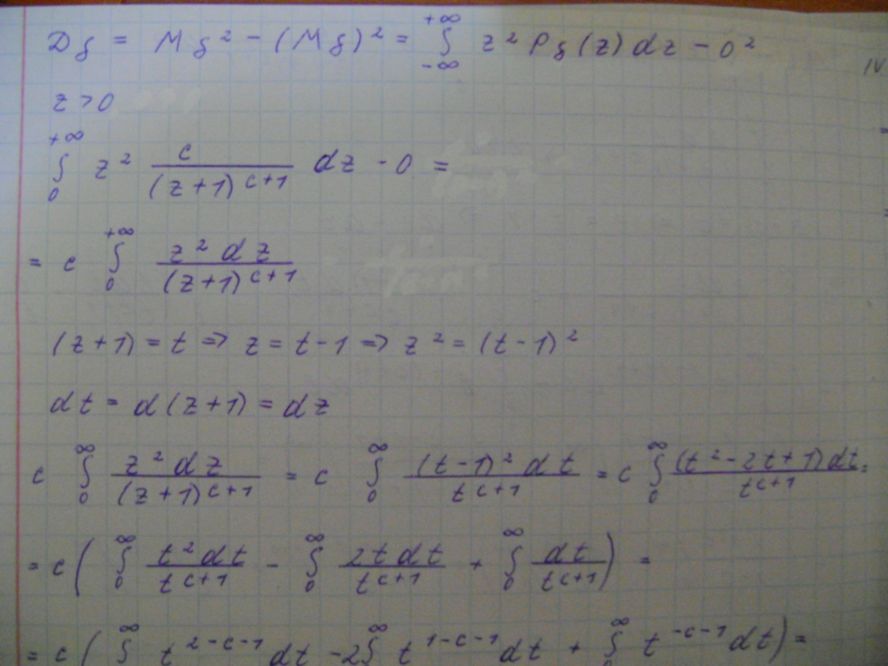 Dξ = Mξ² - (Mξ)² = ∫_{-∞}^{+∞} z² Pξ(z) dz - 0²
z > 0
∫_0^{+∞} z² c/(z+1)^{c+1} dz - 0 =
= c ∫_0^{+∞} z² dz/(z+1)^{c+1}
(z+1) = t => z = t-1 => z² = (t-1)²
dt = d(z+1) = dz
c ∫_0^∞ z² dz/(z+1)^{c+1} = c ∫_0^∞ (t-1)² dt/t^{c+1} = c ∫_0^∞ (t²-2t+1) dt/t^{c+1} =
= c ( ∫_0^∞ t² dt/t^{c+1} - ∫_0^∞ 2t dt/t^{c+1} + ∫_0^∞ dt/t^{c+1} ) =
= c ( ∫^∞ t^{2-c-1} dt - 2∫^∞ t^{1-c-1} dt + ∫_0^∞ t^{-c-1} dt ) =